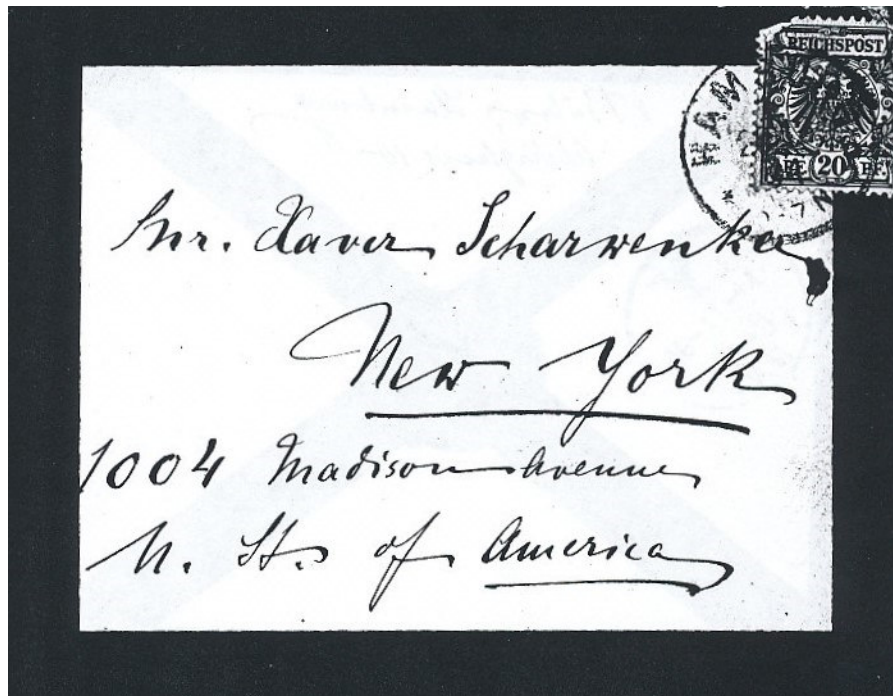 REICHSPOST
HAM
20 PF
Mr. Xaver Scharwenka
New York
1004 Madison Avenue
U. St. of America